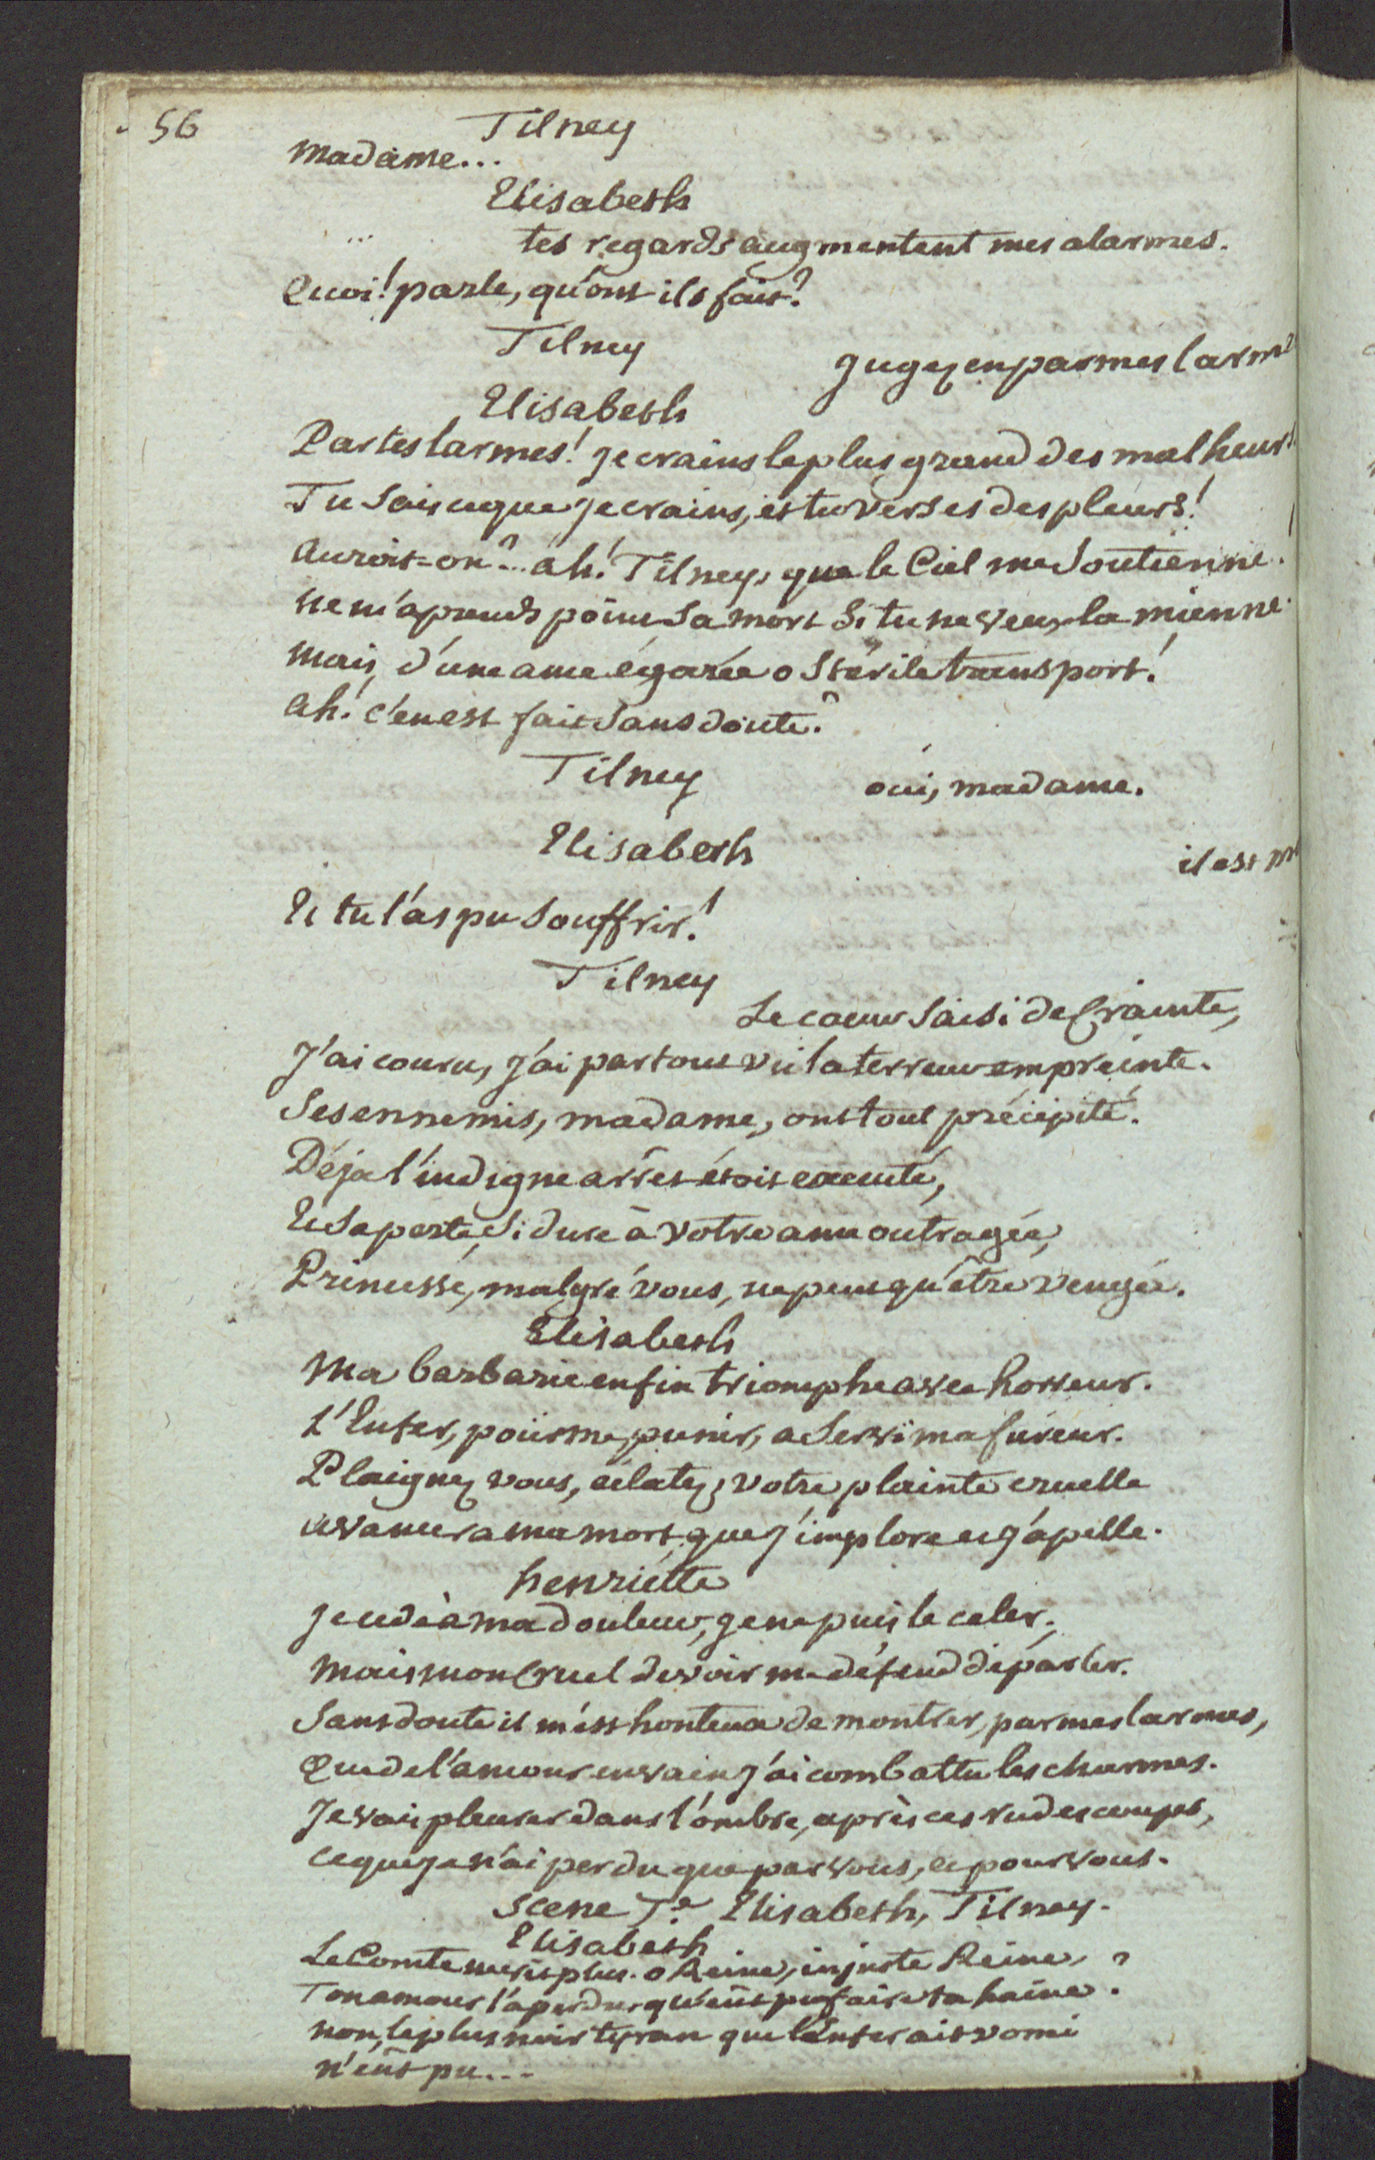 56
Tilney
Madame...
Elisabeth
tes regards augmentent mes alarmes.
Quoi! parle, qu'ont ils fait?
Tilney
Jugez en par mes larmes
Elisabeth
Par tes larmes! je crains le plus grand des malheurs!
Tu sais ce que je crains, et tu verses des pleurs!
auroit-on?.. ah! Tilney, que le Ciel me soutienne!
ne m'aprends point sa mort si tu ne veux la mienne.
Mais, d'une ame égarée o stérile transport!
ah! c'en est fait sans doute?
Tilney
oui, madame.
Elisabeth
il est
Et tu l'as pu souffrir!
Tilney
Le coeur saisi de Crainte,
J'ai couru, j'ai partout vu la terreur empreinte.
Ses ennemis, madame, ont tout précipité.
Déja l'indigne arrêt étoit executé,
Et sa perte, si dure à votre ame outragée,
Princesse, malgré vous, ne peut qu'être vengée.
Elisabeth
Ma barbarie enfin triomphe avec horreur.
L'Enfer, pour me punir, a servi ma fureur.
Plaignez vous, éclatez; votre plainte cruelle
avancera ma mort que j'implore et j'apelle.
henriette
Je cede à ma douleur, je ne puis le celer;
Mais mon Cruel devoir me défend de parler.
Sans doute il m'est honteux de montrer, par mes larmes,
Que de l'amour en vain j'ai combattu les charmes.
Je vais pleurer dans l'ombre, après ces rudes coups,
Ce que je n'ai perdu que par vous, et pour vous.
Scene 7.e Elisabeth, Tilney.
Elisabeth
Le Comte ne vit plus. o Reine, injuste Reine,
Ton amour l'a perdu, qu'eût pu faire ta haine?
non, le plus noir tyran que l'Enfer ait vomi
n'eût pu...